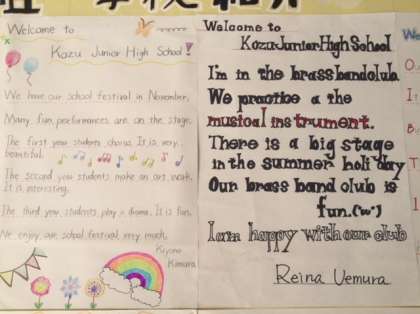 学校紹介
Welcome to
Kozu Junior High School!
We have our school festival in November.
Many fun performances are on the stage.
The first year students chorus. It is very
beautiful.
The second year students make an art work.
It is interesting.
The third year students play a drama. It is fun.
We enjoy our school festival very much.
Kiyono
Kimura
Welcome to
Kozu Junior High School
I'm in the brass band club.
We practice a the
musical instrument.
There is a big stage
in the summer holi day
Our brass band club is
fun.(^ω^)
I am happy with our club
Reina Uemura
We